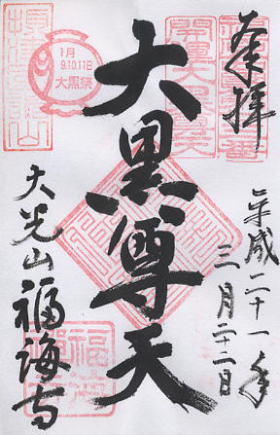 奉拝
平成二十一年
三月二十二日
大黒尊天
1月
9.10.11日
大黒祭
大光山福海寺